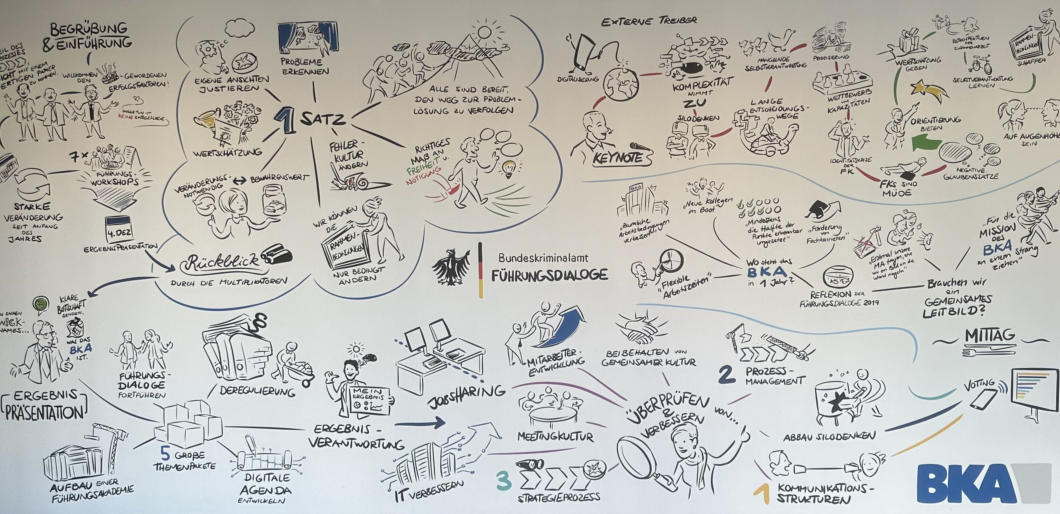 BEGRÜßUNG
& EINFÜHRUNG
WILLKOMMEN
DEN
GEWORDENEN
ERFOLGSFAKTOREN!
7x
FÜHRUNGS-
WORKSHOPS
STARKE
VERÄNDERUNG
SEIT ANFANG
DES
JAHRES
4. DEZ
ERGEBNISPRÄSENTATION
EIGENE ANSICHTEN
JUSTIEREN
PROBLEME
ERKENNEN
1 SATZ
WERTSCHÄTZUNG
ALLE SIND BEREIT,
DEN WEG ZUR PROBLEM-
LÖSUNG ZU VERFOLGEN
FEHLER-
KULTUR
ÄNDERN
RICHTIGES
MAß AN
FREIHEIT U.
NÖTIGUNG
VERÄNDERUNGS-
NOTWENDIG
BEWAHRENSWERT
WIR KÖNNEN
DIE
RAHMEN-
BEDINGUNGEN
NUR BEDINGT
ÄNDERN
Rückblick
DURCH DIE MULTIPLIKATOREN
EXTERNE TREIBER
DIGITALISIERUNG
KOMPLEXITÄT
NIMMT
ZU
SILODENKEN
MANGELNDE
SELBSTVERANTWORTUNG
LANGE
ENTSCHEIDUNGS-
WEGE
PRIORISIERUNG
WETTBEWERB
KAPAZITÄTEN
IDENTITÄTSKRISE
DER
FK
KEYNOTE
WERTSCHÄTZUNG
GEBEN
SELBSTVERANTWORTUNG
LERNEN
RAHMEN-
BEDINGUNGEN
SCHAFFEN
ORIENTIERUNG
BIETEN
AUF AUGENHÖHE
SEIN
FKs SIND
MÜDE
NEGATIVE
GLAUBENSSÄTZE
Bundeskriminalamt
FÜHRUNGSDIALOGE
„Räumliche
Arbeitsbedingungen
verbessern“
„Neue Kollegen
im Boot“
„Mindestens
die Hälfte der
Punkte erkennbar
umgesetzt“
„Förderung
von
Fachkarrieren“
„Flexible
Arbeitszeiten“
Wo steht das
BKA
in 1 Jahr?
REFLEXION DER
FÜHRUNGSDIALOGE 2019
„Für die
MISSION
des
BKA
an einem Strang
ziehen“
Brauchen wir
ein
GEMEINSAMES
LEITBILD?
MITTAG
KLARE
BOTSCHAFT
SENDEN,
WAS DAS
BKA
IST.
ERGEBNIS-
PRÄSENTATION
FÜHRUNGS-
DIALOGE
FORTFÜHREN
§
DEREGULIERUNG
MEIN
ERGEBNIS
ERGEBNIS-
VERANTWORTUNG
5 GROßE
THEMENPAKETE
AUFBAU EINER
FÜHRUNGSAKADEMIE
DIGITALE
AGENDA
ENTWICKELN
JOBSHARING
IT VERBESSERN
MITARBEITER-
ENTWICKLUNG
BEIBEHALTEN VON
GEMEINSAMER KULTUR
MEETINGKULTUR
3 STRATEGIEPROZESS
ÜBERPRÜFEN
&
VERBESSERN
VON...
2 PROZESS-
MANAGEMENT
ABBAU SILODENKEN
1 KOMMUNIKATIONS-
STRUKTUREN
VOTING
BKA